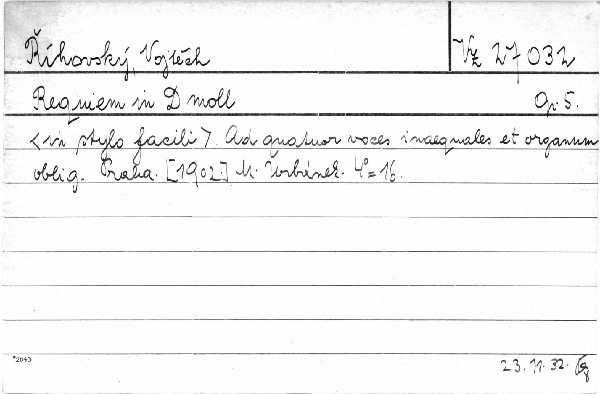 Říhovský, Vojtěch Vz 27032
Requiem in D moll Op. 5.
<in stylo facili>. Ad quatuor voces inaequales et organum
oblig. Praha. [1902.] M. Urbánek. 4° = 16.
*2040 23. 11. 32.